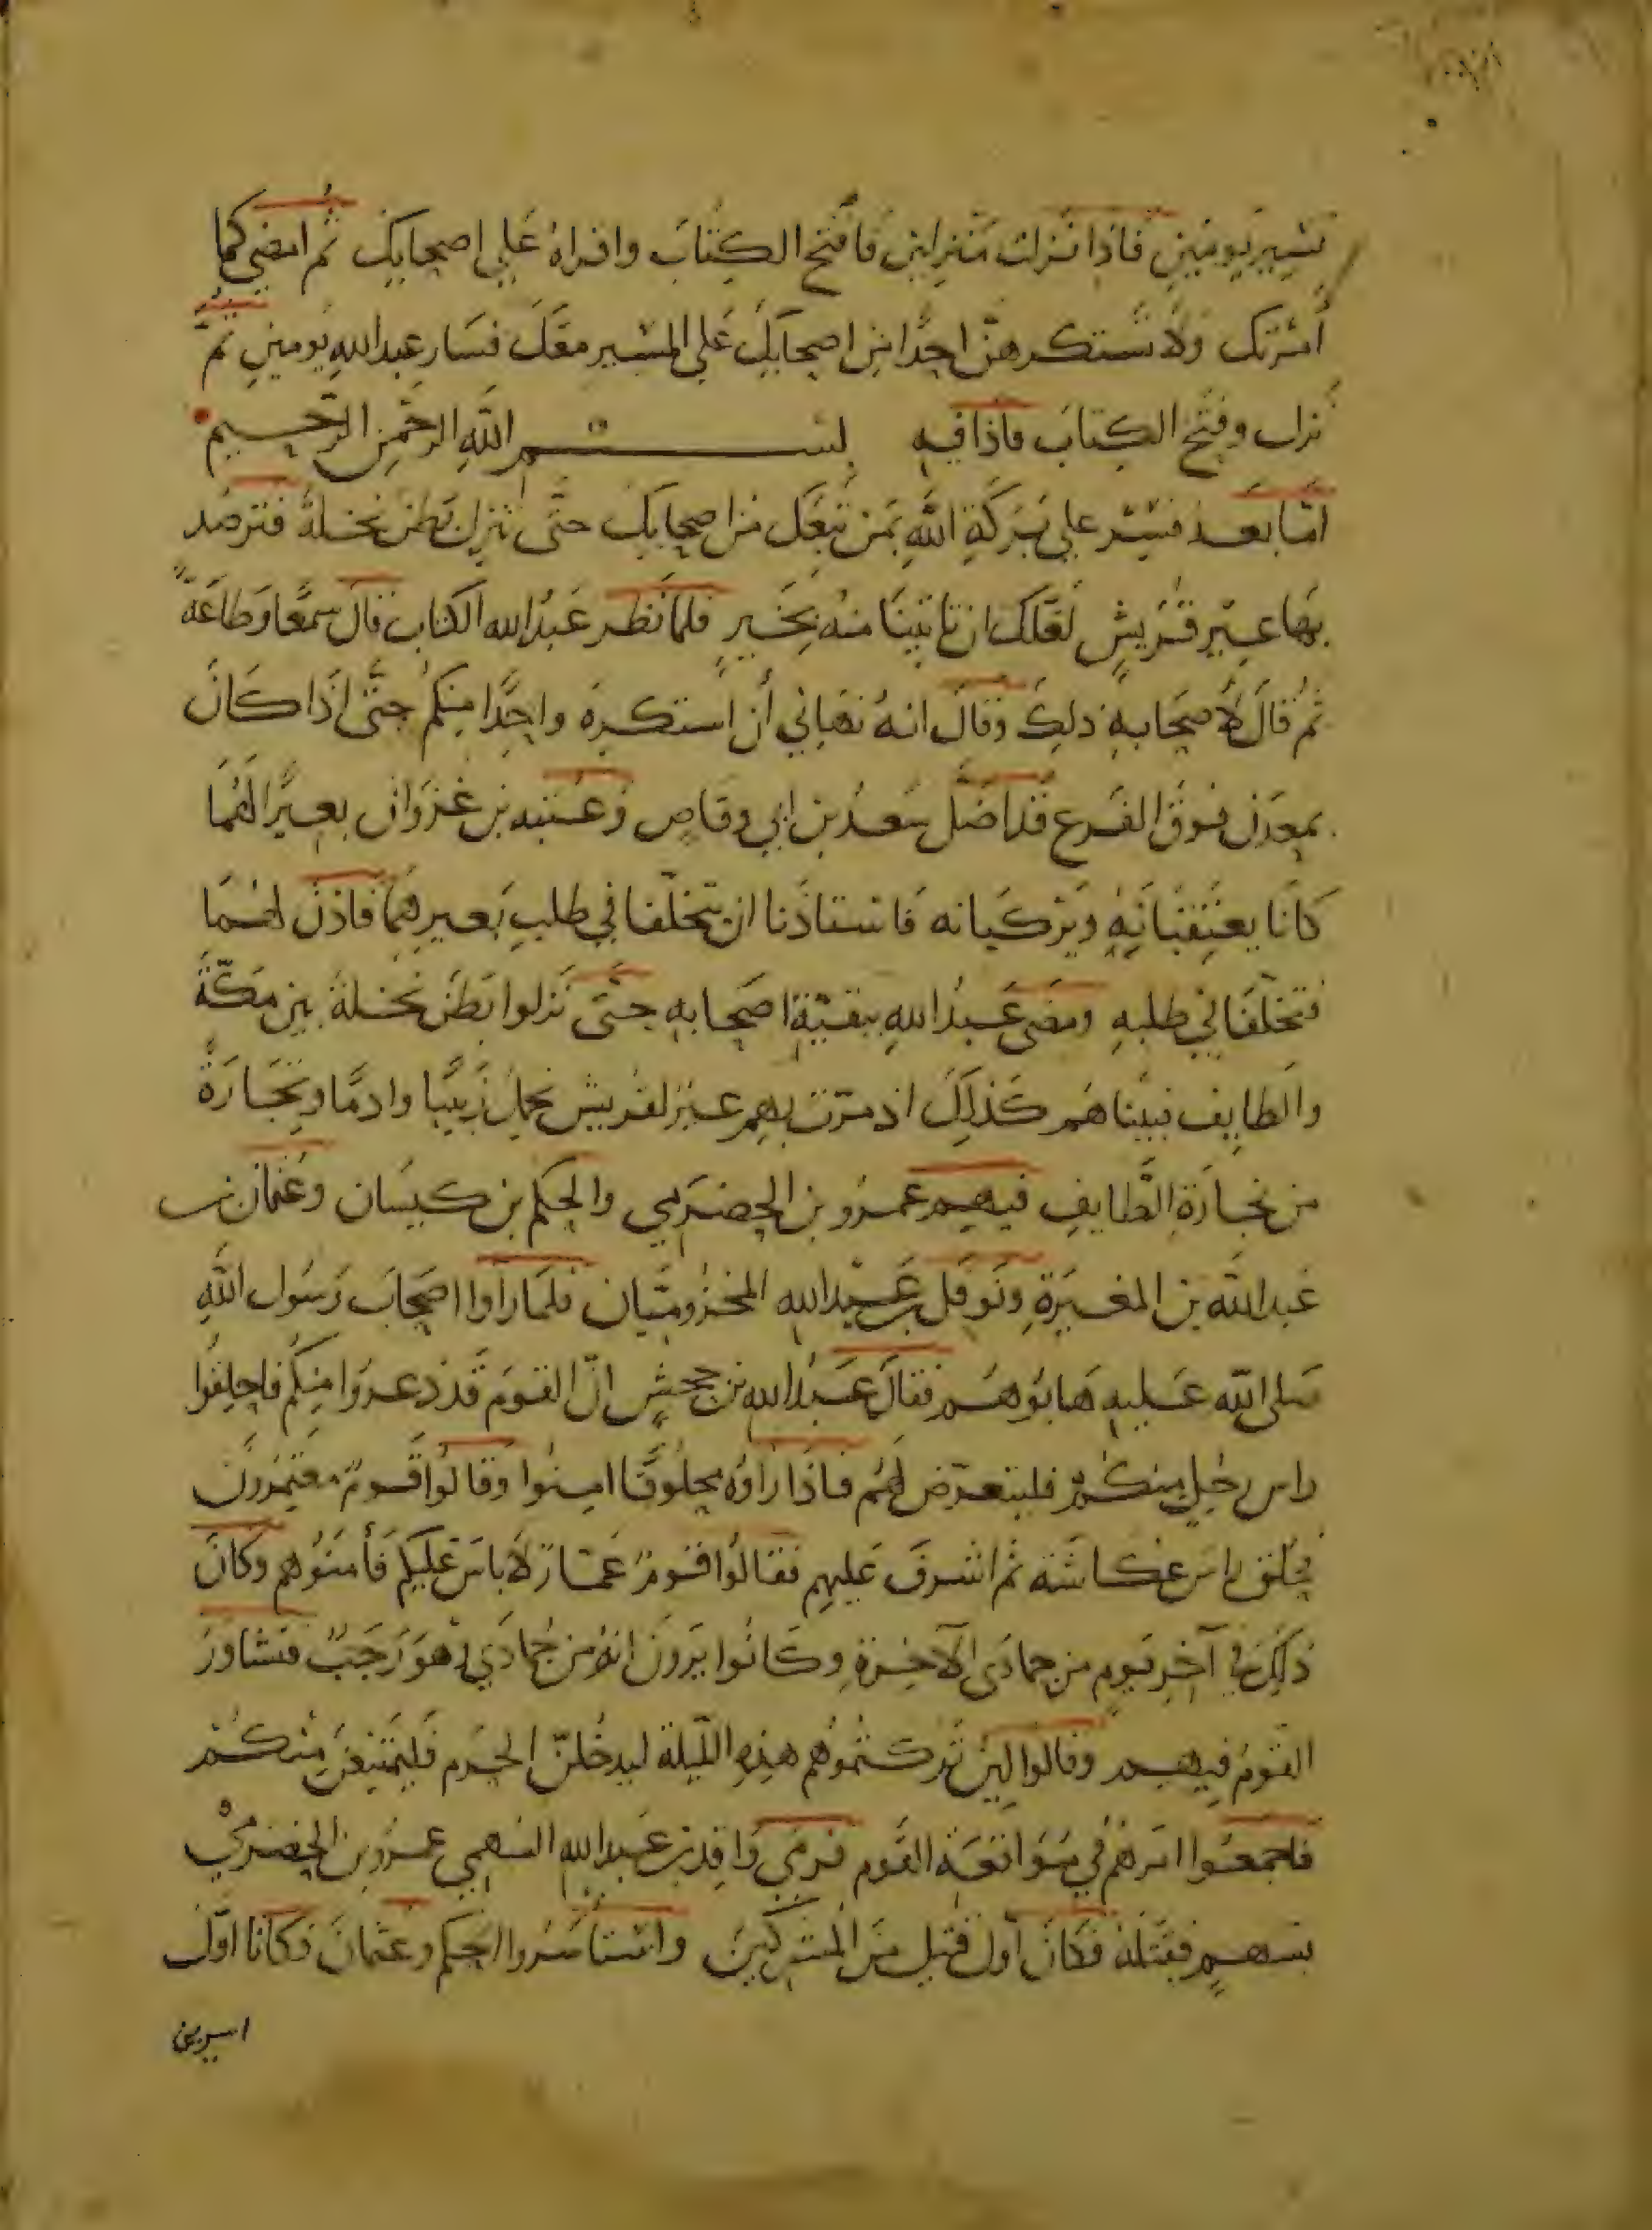 تسير يومين فاذا نزلت منزلين فافتح الكتاب واقراه على اصحابك ثم امضي كما
أمرتك ولا تستكرهن احدا من اصحابك على المسير معك فسار عبد الله يومين ثم
نزل وفتح الكتاب فاذا فيه بسم الله الرحمن الرحيم
اما بعد فسر على بركة الله بمن تبعك من اصحابك حتى تنزل بطن نخلة فترصد
بها عير قريش لعلك ان تاتينا منه بخير فلما نظر عبد الله الكتاب قال سمعا وطاعة
ثم قال لاصحابه ذلك وقال انه نهاني أن استكره واحدا منكم حتى اذا كان
بمعدن فوق الفرع قد اضل سعد بن ابي وقاص وعتبه بن غزوان بعيرا لهما
كانا يعتقبانه ويركبانه فاستاذنا ان يتخلفا في طلب بعيرهما فاذن لهما
فتخلفا في طلبه ومضى عبد الله ببقية اصحابه حتى نزلوا بطن نخلة بين مكة
والطايف فبينا هم كذلك اذ مرت بهم عير لقريش تحمل زبيبا وادما وتجارة
من تجارة الطايف فيهم عمرو بن الحضرمي والحكم بن كيسان وعثمان بن
عبد الله بن المغيرة ونوفل بن عبد الله المخزوميان فلما راوا اصحاب رسول الله
صلى الله عليه هابوهم فقال عبد الله بن جحش ان القوم قد ذعروا منكم فاحلقوا
راس رجل منكم فليتعرض لهم فاذا راوه محلوقا امنوا وقالوا قوم معتمرون
فحلق راس عكاشة ثم اشرف عليهم فقالوا قوم عمار لا باس عليكم فأمنوهم وكان
ذلك في آخر يوم من جمادى الآخرة وكانوا يرون انه من جمادي او هو رجب فتشاور
القوم فيهم وقالوا لين تركتموهم هذه الليلة ليدخلن الحرم فليمتنعن منكم
فاجمعوا امرهم في مواقعة القوم فرمى واقد بن عبد الله السهمي عمرو بن الحضرمي
بسهم فقتله فكان أول قتيل من المشركين واستاسروا الحكم وعثمان فكانا اول
اسيرين